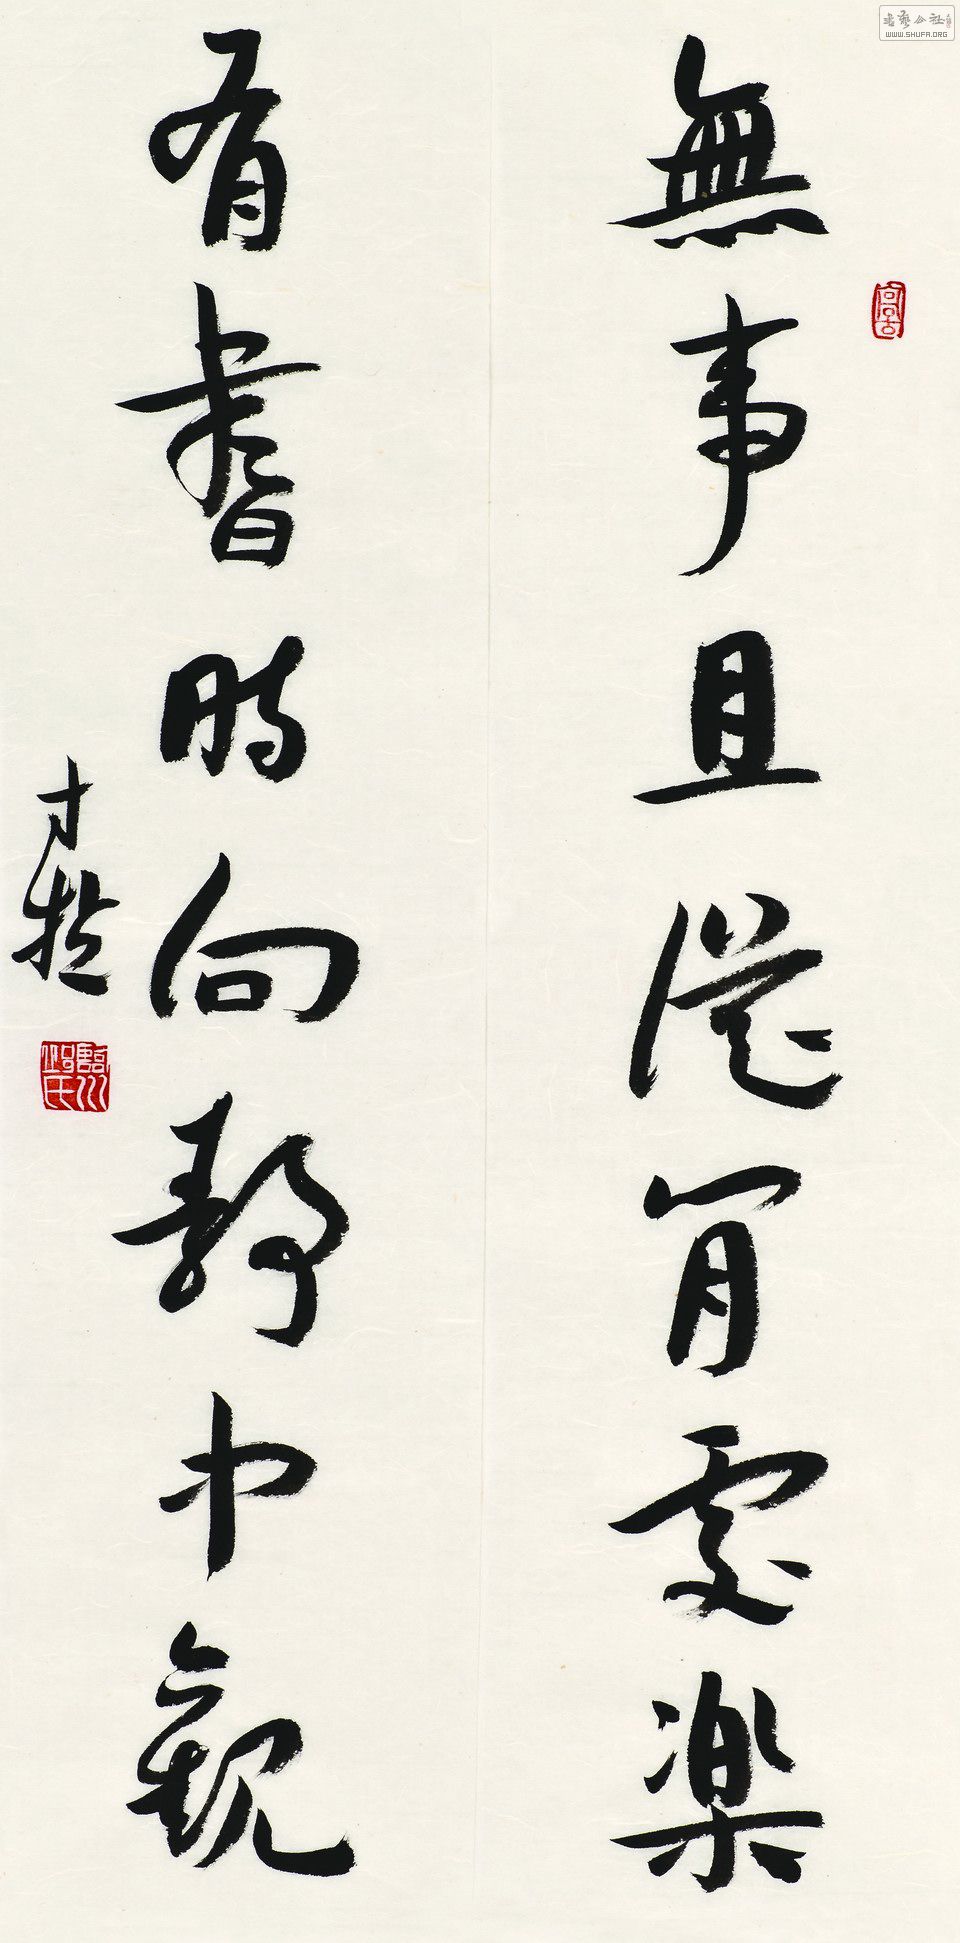 無事且從閒處樂
有書時向靜中觀
書藝公社
WWW.SHUFA.ORG